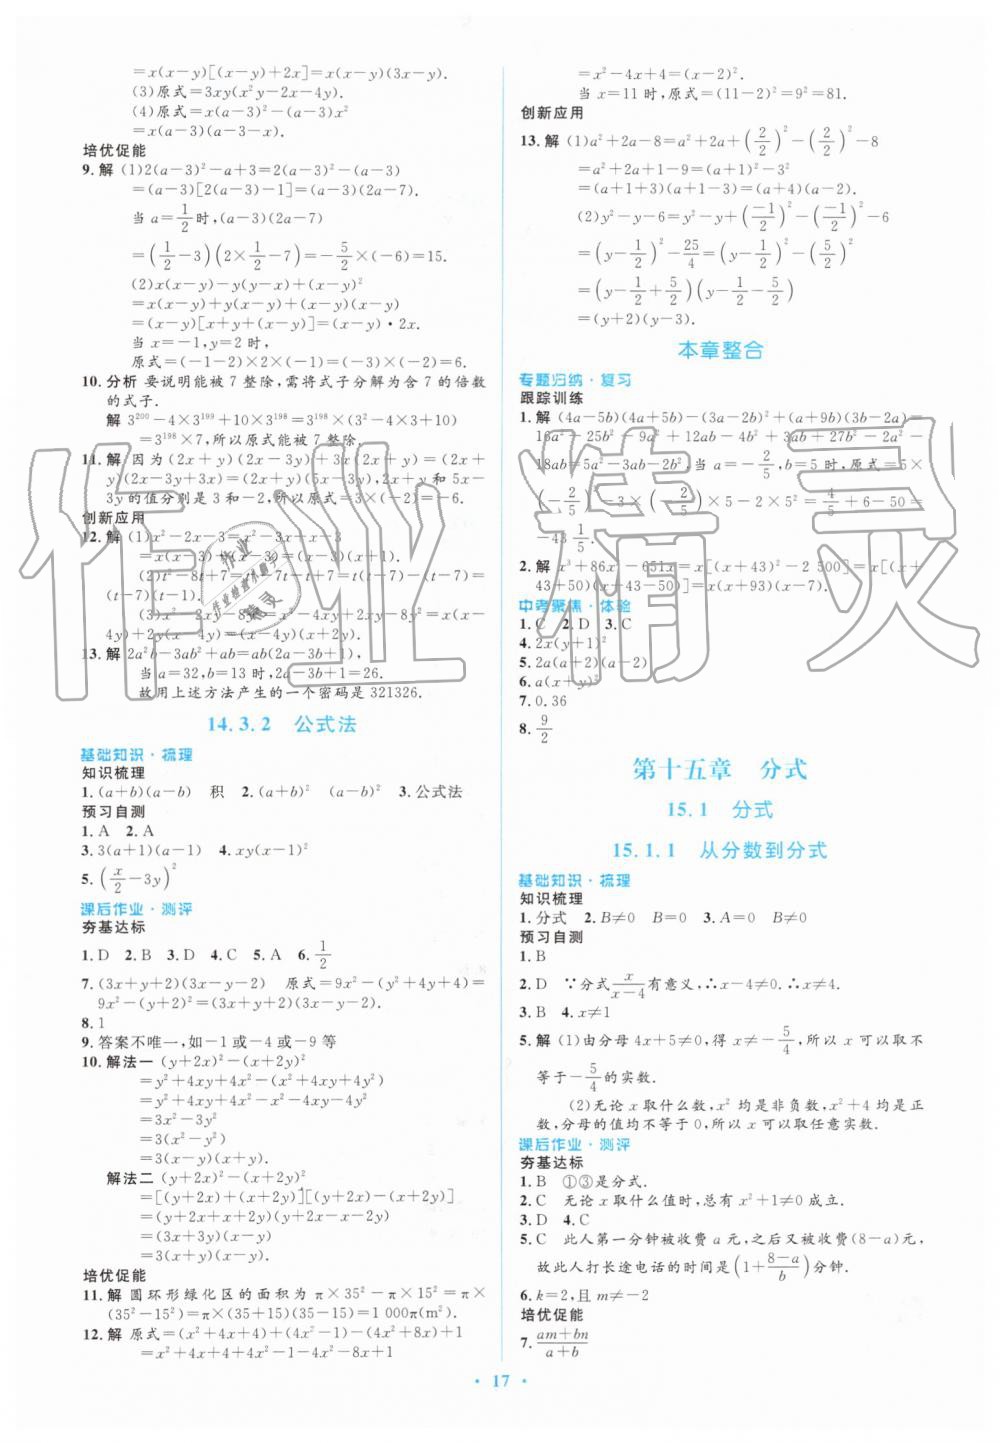 =x(x-y)[(x-y)+2x]=x(x-y)(3x-y).
(3)原式=3xy(x²y-2x-4y).
(4)原式=x(a-3)²-(a-3)x²
=x(a-3)(a-3-x).
培优促能
9.解 (1)2(a-3)²-a+3=2(a-3)²-(a-3)
=(a-3)[2(a-3)-1]=(a-3)(2a-7).
当 a=1/2时,(a-3)(2a-7)
=(1/2-3)(2×1/2-7)=-5/2×(-6)=15.
(2)x(x-y)-y(y-x)+(x-y)²
=x(x-y)+y(x-y)+(x-y)(x-y)
=(x-y)[x+y+(x-y)]=(x-y)·2x.
当 x=-1,y=2 时,
原式=(-1-2)×2×(-1)=(-3)×(-2)=6.
10.分析 要说明能被 7 整除,需将式子分解为含 7 的倍数
的式子.
解 3²⁰⁰-4×3¹⁹⁹+10×3¹⁹⁸=3¹⁹⁸×(3²-4×3+10)
=3¹⁹⁸×7,所以原式能被 7 整除.
11.解 因为(2x+y)(2x-3y)+3x(2x+y)=(2x+
y)(2x-3y+3x)=(2x+y)(5x-3y),2x+y 和 5x-
3y 的值分别是 3 和-2,所以原式=3×(-2)=-6.
创新应用
12.解 (1)x²-2x-3=x²-3x+x-3
=x(x-3)+(x-3)=(x-3)(x+1).
(2)t²-8t+7=t²-t-7t+7=t(t-1)-7(t-1)
=(t-1)(t-7).
13.解 2a²b-3ab²+ab=ab(2a-3b+1),
当 a=32,b=13 时,2a-3b+1=26.
故用上述方法产生的一个密码是 321326.
14.3.2 公式法
基础知识·梳理
知识梳理
1.(a+b)(a-b) 积 2.(a+b)² (a-b)² 3.公式法
预习自测
1.A 2.A
3.3(a+1)(a-1) 4.xy(x-1)²
5.(x/2-3y)²
课后作业·测评
夯基达标
1.D 2.B 3.D 4.C 5.A 6.1/2
7.(3x+y+2)(3x-y-2) 原式=9x²-(y²+4y+4)=
9x²-(y+2)²=(3x+y+2)(3x-y-2).
8.1
9.答案不唯一,如-1 或-4 或-9 等
10.解法一 (y+2x)²-(x+2y)²
=y²+4xy+4x²-(x²+4xy+4y²)
=y²+4xy+4x²-x²-4xy-4y²
=3x²-3y²
=3(x²-y²)
=3(x+y)(x-y).
解法二 (y+2x)²-(x+2y)²
=[(y+2x)+(x+2y)][(y+2x)-(x+2y)]
=(y+2x+x+2y)(y+2x-x-2y)
=(3x+3y)(x-y)
=3(x+y)(x-y).
培优促能
11.解 圆环形绿化区的面积为 π×35²-π×15²=π×
(35²-15²)=π×(35+15)(35-15)=1 000π(m²).
12.解 原式=(x²+4x+4)+(4x²-1)-(4x²+8x)+1
=x²+4x+4+4x²-1-4x²-8x+1
=x²-4x+4=(x-2)².
当 x=11 时,原式=(11-2)²=9²=81.
创新应用
13.解 (1)a²+2a-8=a²+2a+(2/2)²-(2/2)²-8
=a²+2a+1-9=(a+1)²-3²
=(a+1+3)(a+1-3)=(a+4)(a-2).
(2)y²-y-6=y²-y+(-1/2)²-(-1/2)²-6
=(y-1/2)²-25/4=(y-1/2)²-(5/2)²
=(y-1/2+5/2)(y-1/2-5/2)
=(y+2)(y-3).
本章整合
专题归纳·复习
跟踪训练
1.解 (4a-5b)(4a+5b)-(3a-2b)²+(a+9b)(3b-2a)=
16a²-25b²-9a²+12ab-4b²+3ab+27b²-2a²-
18ab=5a²-3ab-2b²,当 a=-2/5,b=5 时,原式=5×
(-2/5)²-3×(-2/5)×5-2×5²=4/5+6-50=
-43 1/5.
2.解 x³+86x²-651x=x[(x+43)²-2 500]=x(x+
43+50)(x+43-50)=x(x+93)(x-7).
中考聚焦·体验
1.C 2.D 3.C
4.2x(y+1)²
5.2a(a+2)(a-2)
6.a(x+y)²
7.0.36
8.9/2
第十五章 分式
15.1 分式
15.1.1 从分数到分式
基础知识·梳理
知识梳理
1.分式 2.B≠0 B=0 3.A=0 B≠0
预习自测
1.B
2.D ∵分式x/(x-4)有意义,∴x-4≠0.∴x≠4.
3.B 4.x≠1
5.解 (1)由分母 4x+5≠0,得 x≠-5/4,所以 x 取不
等于-5/4的实数.
(2)无论 x 取什么数,x² 均是非负数,x²+4 均是正
数,分母的值均不等于 0,所以 x 可以取任意实数.
课后作业·测评
夯基达标
1.B ①③是分式.
2.C 无论 x 取什么值时,总有 x²+1≠0 成立.
3.D 4.C
5.C 此人第一分钟被收费 a 元,之后又被收费(8-a)元,
故此人打长途电话的时间是(1+(8-a)/b)分钟.
6.k=2,且 m≠-2
培优促能
7.(am+bn)/(a+b)
· 17 ·
作业精灵